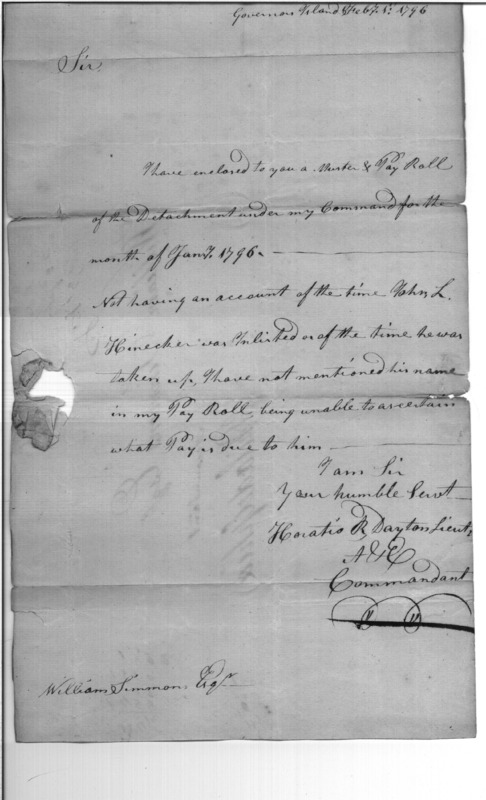 Governors Island Feby. 1st. 1796
Sir
I have enclosed to you a Muster & Pay Roll
of the Detachment under my Command for the
month of Jany. 1796.
Not having an account of the time John L.
Hinecker was Inlisted or of the time he was
taken up, I have not mentioned his name
in my Pay Roll, being unable to ascertain
what Pay is due to him
I am Sir
Your humble Servt
Horatio R Dayton Lieut.
A&E
Commandant
William Simmons Esqr